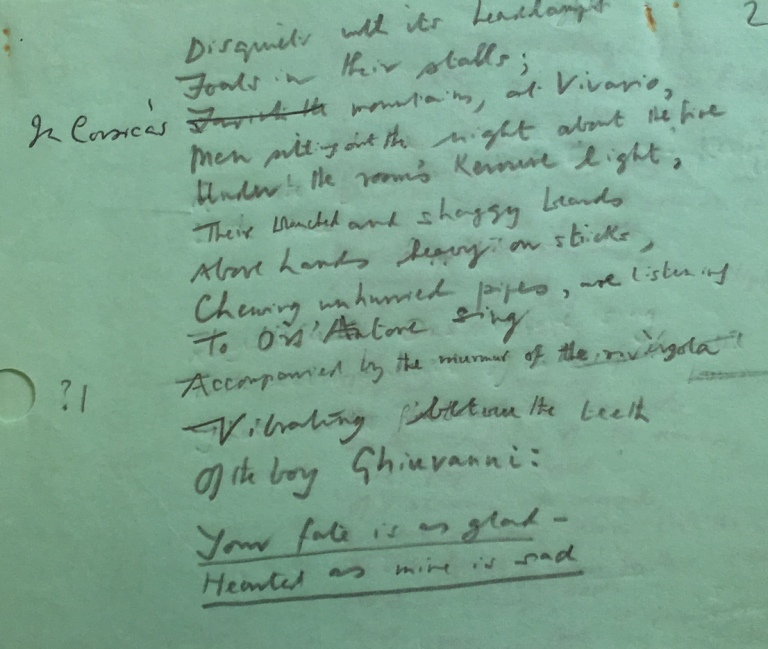 2
Disquiets with its headlamps
Foals in their stalls;
In Corsica's mountains, at Vivario,
Men sitting out the night about the fire
Under the room's Kerosene light,
Their blanched and shaggy beards
Above hands heavy on sticks,
Chewing unhurried pipes, are listening
To Ors'Antone sing
Accompanied by the murmur of the rivérgola
?1
Vibrating between the teeth
Of the boy Ghiuvanni:
Your fate is as glad-
Hearted as mine is sad